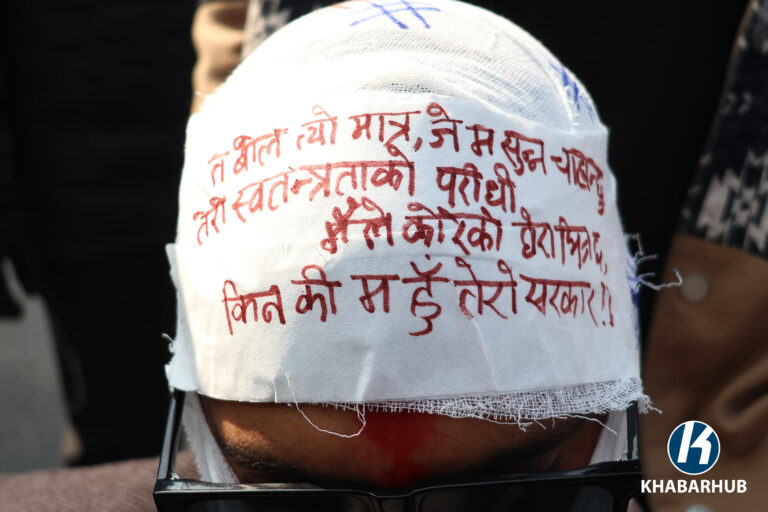 #
त बोल त्यो मात्र, जे म सुन्न चाहन्छु
तेरो स्वतन्त्रताको परीधी
मैले कोरेको घेरा भित्र छ,
किन की म हुँ तेरो सरकार !!
KHABARHUB